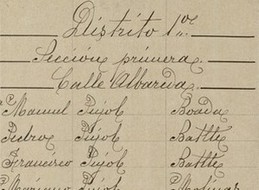 Distrito 1.er
Sección primera.
Calle Albareda
Manuel Pujol Boada
Pedro Pujol Batlle
Francisco Pujol Batlle
Mariano Pujol Molinas